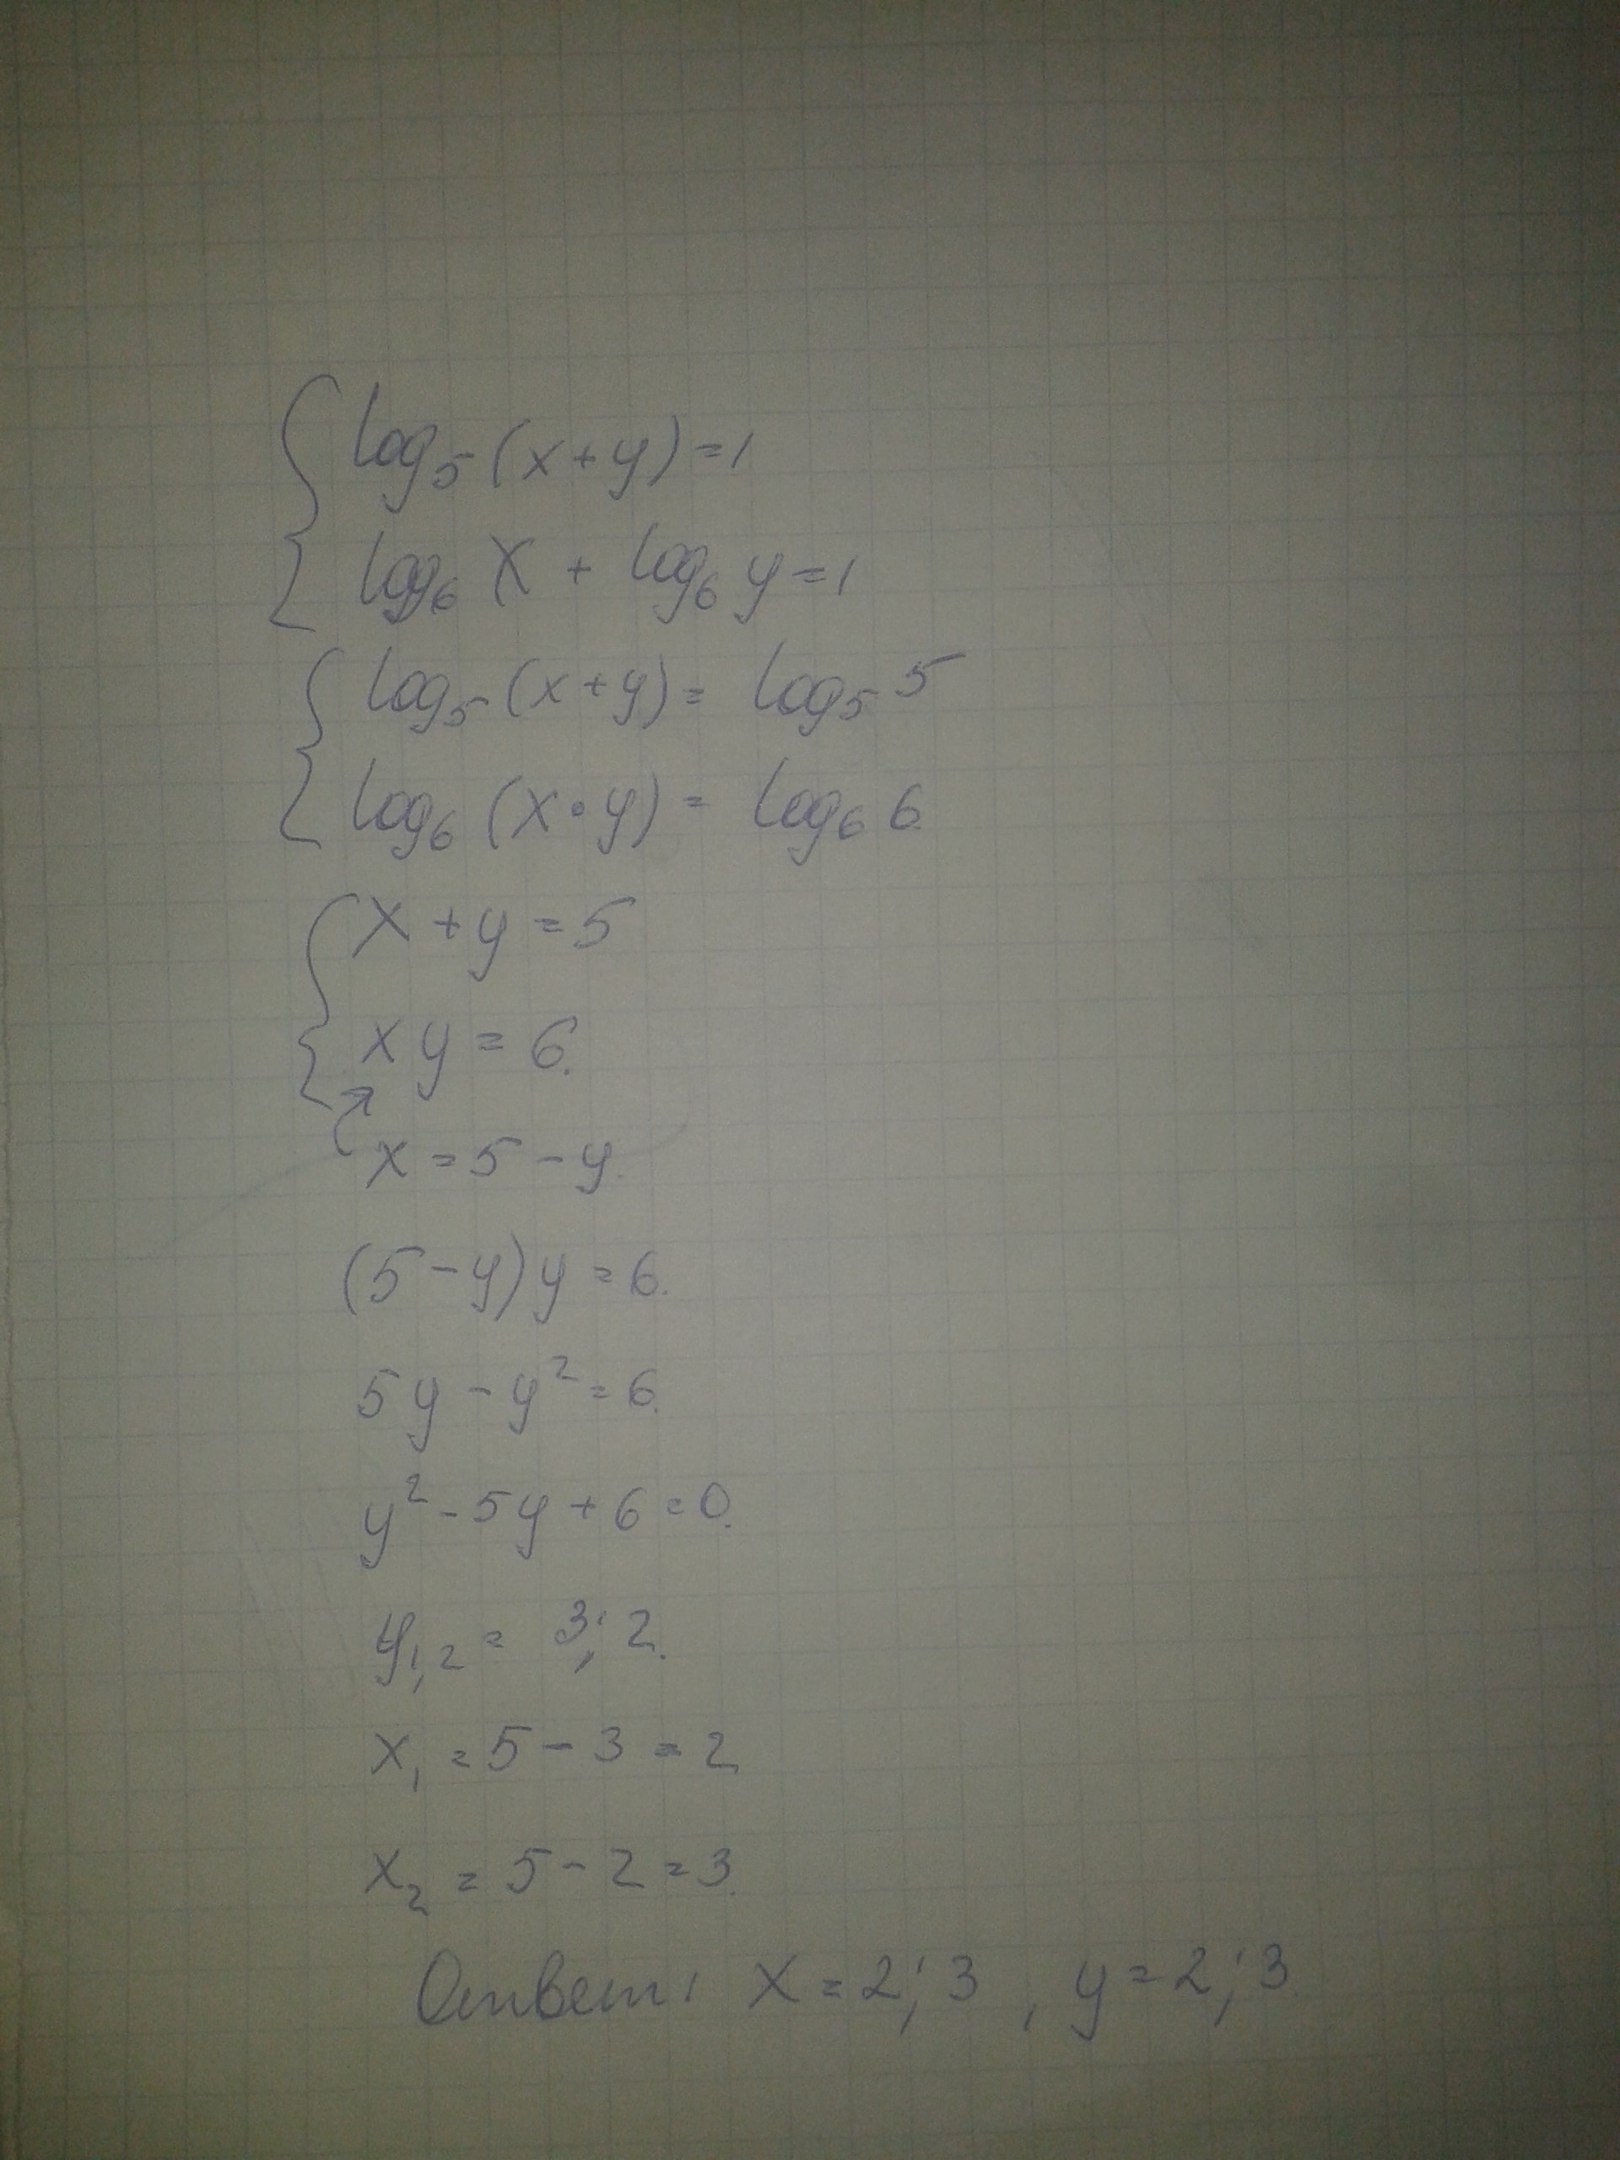 log₅(x+y)=1
log₆ x + log₆ y=1
log₅(x+y)= log₅5
log₆(x·y)= log₆6
x+y=5
xy=6.
x=5-y.
(5-y)y=6.
5y-y²=6.
y²-5y+6=0.
y₁,₂= 3; 2.
x₁=5-3=2
x₂=5-2=3.
Ответ: x=2; 3 , y=2; 3